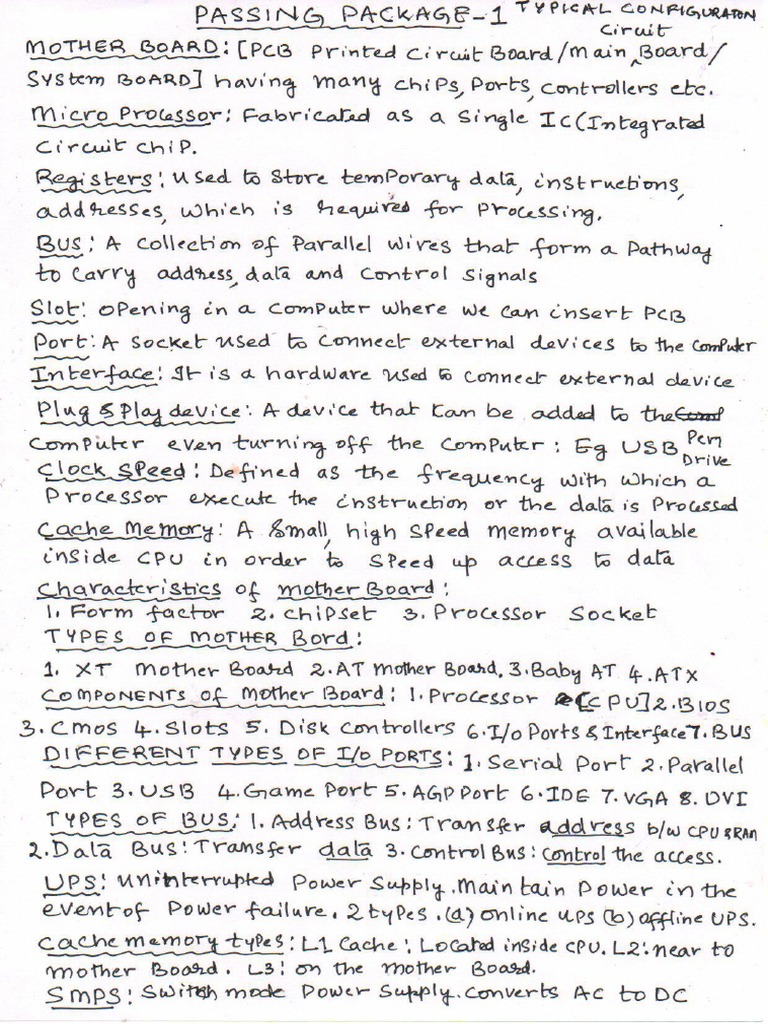 PASSING PACKAGE-1 TYPICAL CONFIGURATON
MOTHER BOARD: [PCB Printed Circuit Board/Main Circuit Board/
System BOARD] having many chips, Ports, controllers etc.
Micro Processor: Fabricated as a single IC(Integrated
Circuit chip.
Registers: Used to store temporary data, instructions,
addresses, which is required for processing.
BUS: A collection of Parallel wires that form a Pathway
to carry address, data and control signals
Slot: Opening in a computer where we can insert PCB
Port: A socket used to connect external devices to the computer
Interface: It is a hardware used to connect external device
Plug & Play device: A device that can be added to the
computer even turning off the computer: Eg USB Pen Drive
Clock Speed: Defined as the frequency with which a
Processor execute the instruction or the data is Processed
Cache Memory: A small, high speed memory available
inside CPU in order to speed up access to data
Characteristics of mother Board:
1. Form factor 2. chipset 3. Processor Socket
TYPES OF MOTHER Bord:
1. XT Mother Board 2. AT Mother Board, 3. Baby AT 4. ATX
COMPONENTS of Mother Board: 1. Processor [CPU] 2. BIOS
3. CMOS 4. Slots 5. Disk Controllers 6. I/O Ports & Interface 7. BUS
DIFFERENT TYPES OF I/O PORTS: 1. Serial Port 2. Parallel
Port 3. USB 4. Game Port 5. AGP Port 6. IDE 7. VGA 8. DVI
TYPES OF BUS: 1. Address Bus: Transfer address b/w CPU & RAM
2. Data Bus: Transfer data 3. Control Bus: control the access.
UPS: Uninterrupted Power Supply. Maintain Power in the
event of Power failure. 2 types. (a) online UPS (b) offline UPS.
Cache memory types: L1 Cache: Located inside CPU. L2: near to
mother Board. L3: on the mother Board.
SMPS: Switch mode Power Supply. Converts AC to DC